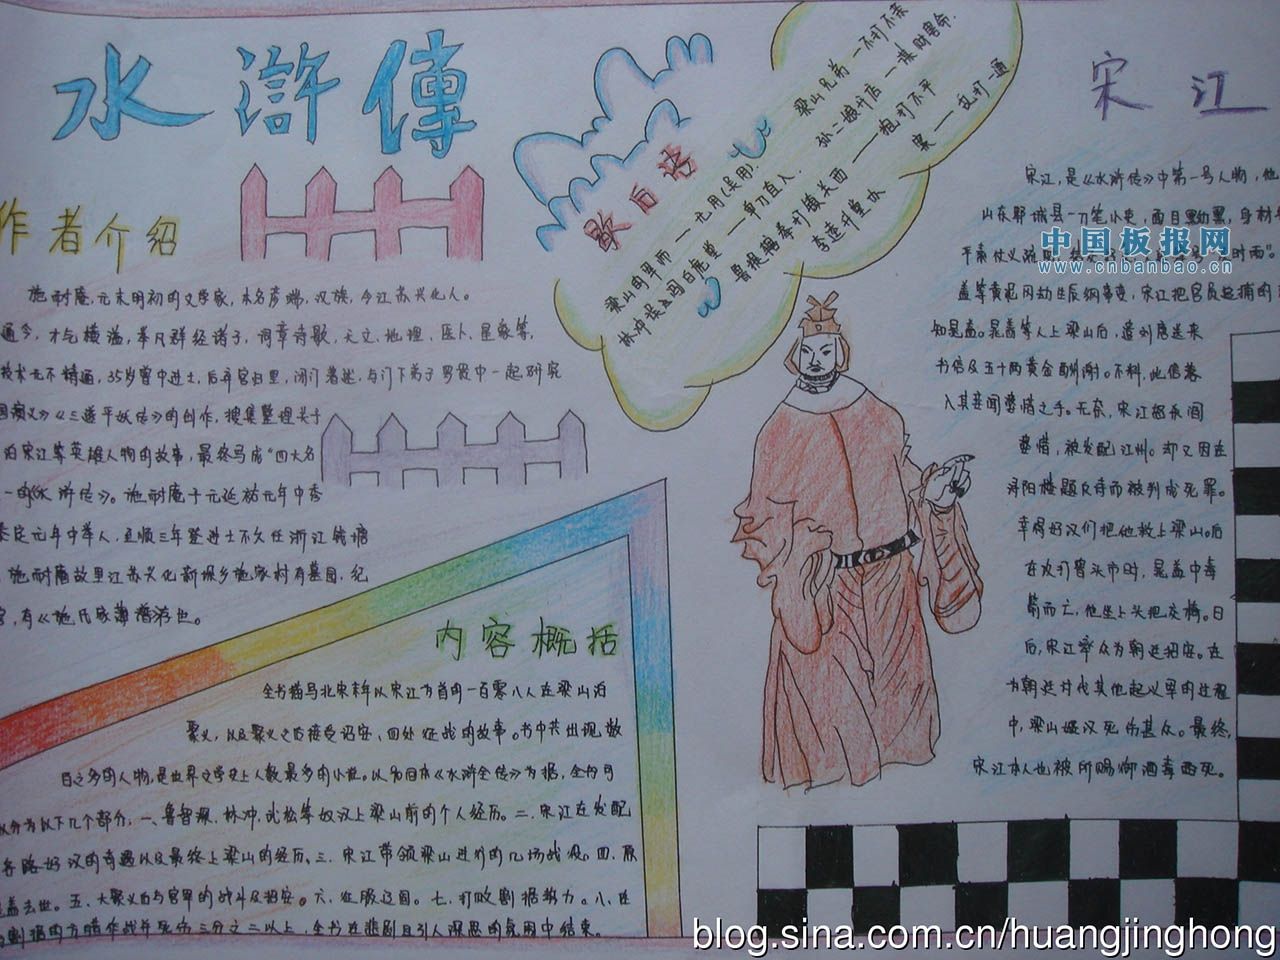 水浒傳
作者介绍
施耐庵,元末明初的文学家,本名彦端,汉族,今江苏兴化人。
通今,才气横溢,举凡群经诸子,词章诗歌,天文、地理、医卜、星象等,
技术无不精通,35岁曾中进士,后弃官归里,闭门著述,与门下弟子罗贯中一起研究
国演义》《三遂平妖传》的创作,搜集整理关于
泊宋江等英雄人物的故事,最终写成“四大名
一的《水浒传》。施耐庵于元延祐元年中秀
泰定元年中举人,至顺三年登进士不久任浙江钱塘
施耐庵故里江苏兴化新垛乡施家村有墓园、纪
官,有《施氏家簿谱》游世。
内容概括
全书描写北宋末年以宋江为首的一百零八人在梁山泊
聚义,以及聚义之后接受招安、四处征战的故事。书中共出现数
百之多的人物,是世界文学史上人数最多的小说。以120回本《水浒全传》为据,全书可
以分为以下几个部分,一、鲁智深、林冲、武松等好汉上梁山前的个人经历。二、宋江在发配
各路好汉的奇遇以及最终上梁山的经历。三、宋江带领梁山进行的几场战役。四、原
晁盖去世。五、大聚义后与官军的战斗及招安。六、征服辽国。七、打败割据势力。八、在
割据的方腊作战并死伤三分之二以上,全书在悲剧且引人深思的氛围中结束。
歇后语
梁山兄弟——不打不亲
孙二娘开店——谋财害命.
梁山的军师——无用(吴用).
林冲误入白虎堂——单刀直入.
鲁提辖拳打镇关西——抱打不平
李逵升堂办案——乱打一通.
宋江
宋江,是《水浒传》中第一号人物,他
山东郓城县一刀笔小吏,面目黝黑,身材
平素仗义疏
时雨”。
盖等黄泥冈劫生辰纲事变,宋江把官兵追捕的
知晁盖。晁盖等人上梁山后,遣刘唐送来
书信及五十两黄金酬谢。不料,此信落
入其妾阎婆惜之手。无奈,宋江怒杀阎
婆惜,被发配江州。却又因在
浔阳楼题反诗而被判成死罪。
幸得好汉们把他救上梁山。后
在攻打曾头市时,晁盖中毒
箭而亡,他坐上头把交椅。日
后,宋江率众为朝廷招安。在
为朝廷讨伐其他起义军的过程
中,梁山好汉死伤甚众。最终,
宋江本人也被所赐御酒毒而死。
中国板报网
www.cnbanbao.cn
blog.sina.com.cn/huangjinghong